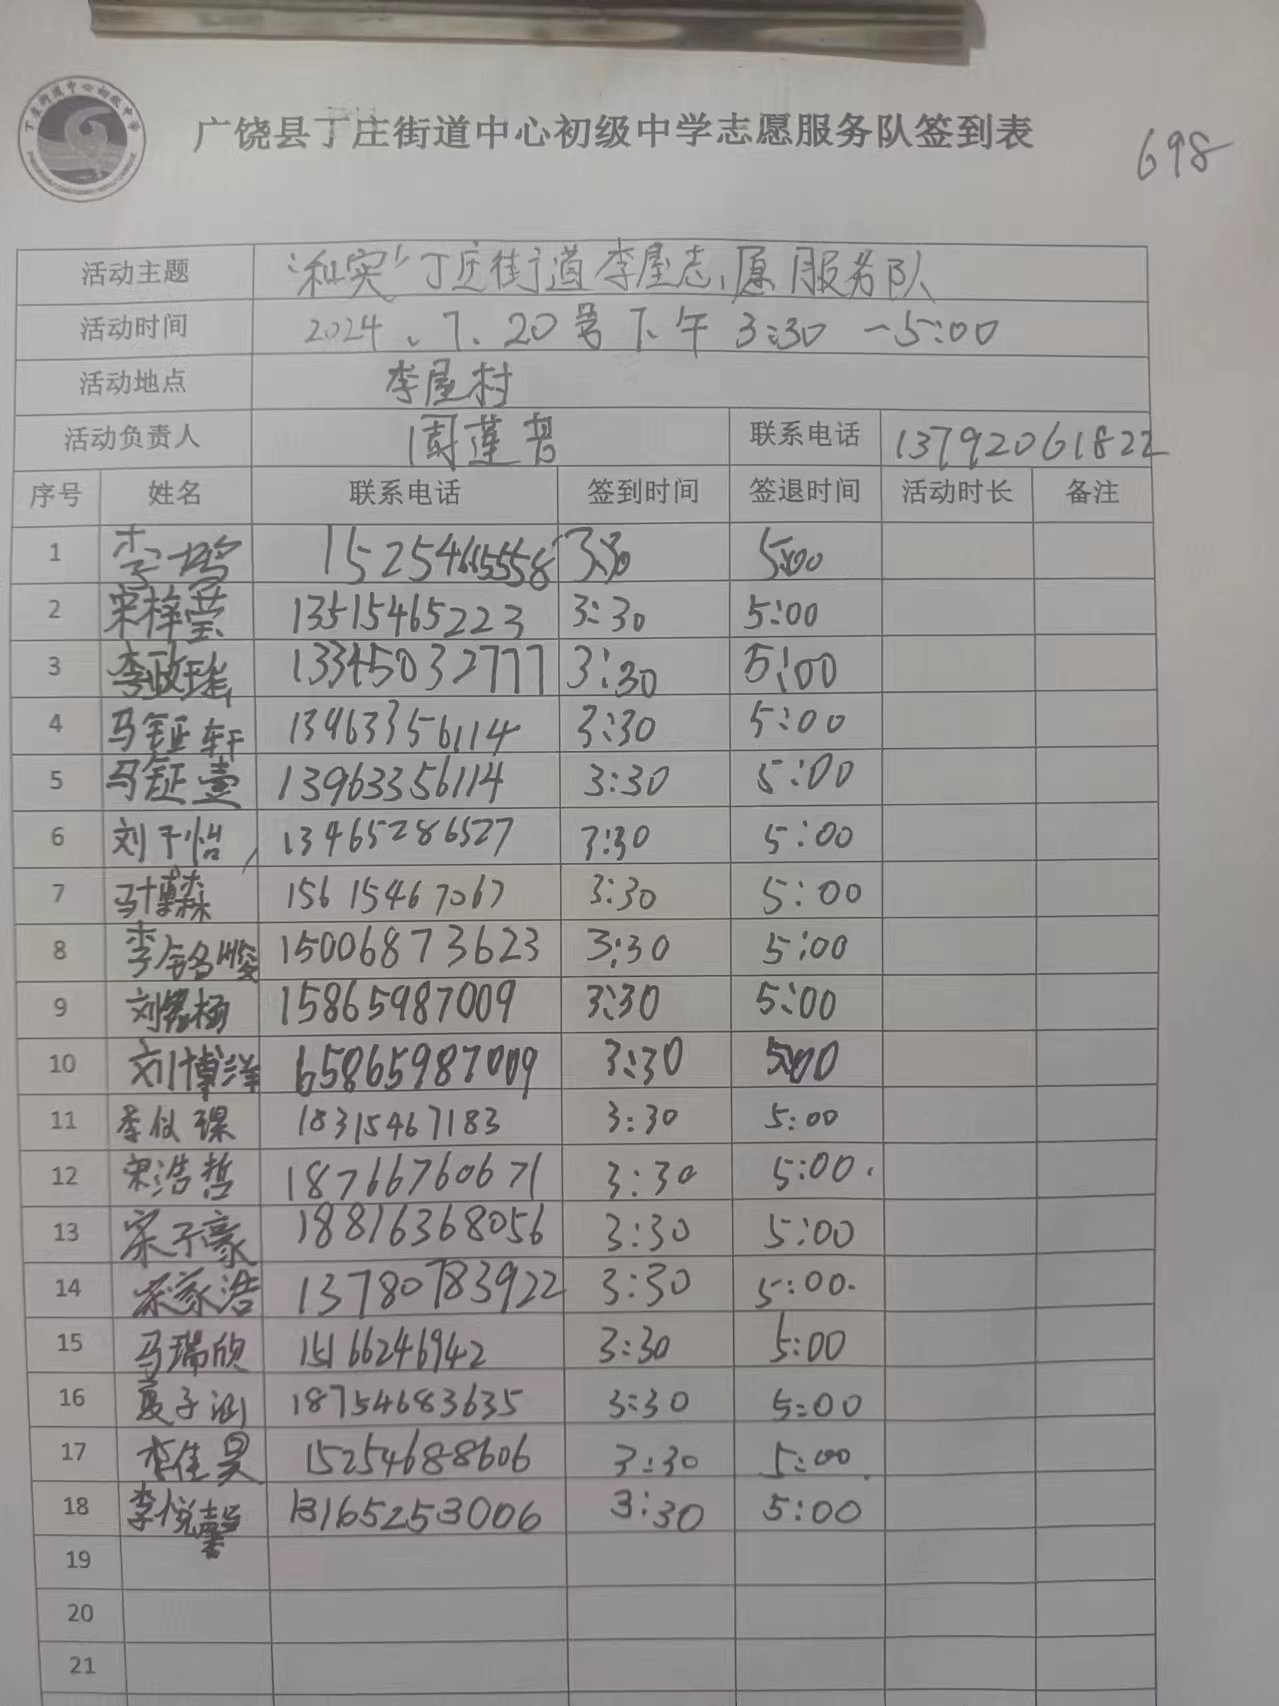 广饶县丁庄街道中心初级中学志愿服务队签到表
698
活动主题 "和实"丁庄街道李屋志愿服务队
活动时间 2024.7.20号下午3:30-5:00
活动地点 李屋村
活动负责人 周莲 联系电话 13792061822
序号 姓名 联系电话 签到时间 签退时间 活动时长 备注
1 李一鸣 3:30 5:00
2 宋梓莹 13515465223 3:30 5:00
3 李政瑶 13345032777 3:30 5:00
4 马钲轩 13963356114 3:30 5:00
5 马钲壹 13963356114 3:30 5:00
6 刘于怡 13465286527 3:30 5:00
7 马博森 15615467067 3:30 5:00
8 李铭 15006873623 3:30 5:00
9 刘 杨 15865987009 3:30 5:00
10 刘博洋 65865987009 3:30 5:00
11 李仪 18315467183 3:30 5:00
12 宋浩哲 18766760671 3:30 5:00.
13 宋子豪 18816368056 3:30 5:00
14 宋家浩 13780783922 3:30 5:00.
15 马瑞欣 15166246942 3:30 5:00
16 夏子涵 18754683635 3:30 5:00
17 李佳昊 15254688606 3:30 5:00.
18 李悦馨 13165253006 3:30 5:00
19
20
21